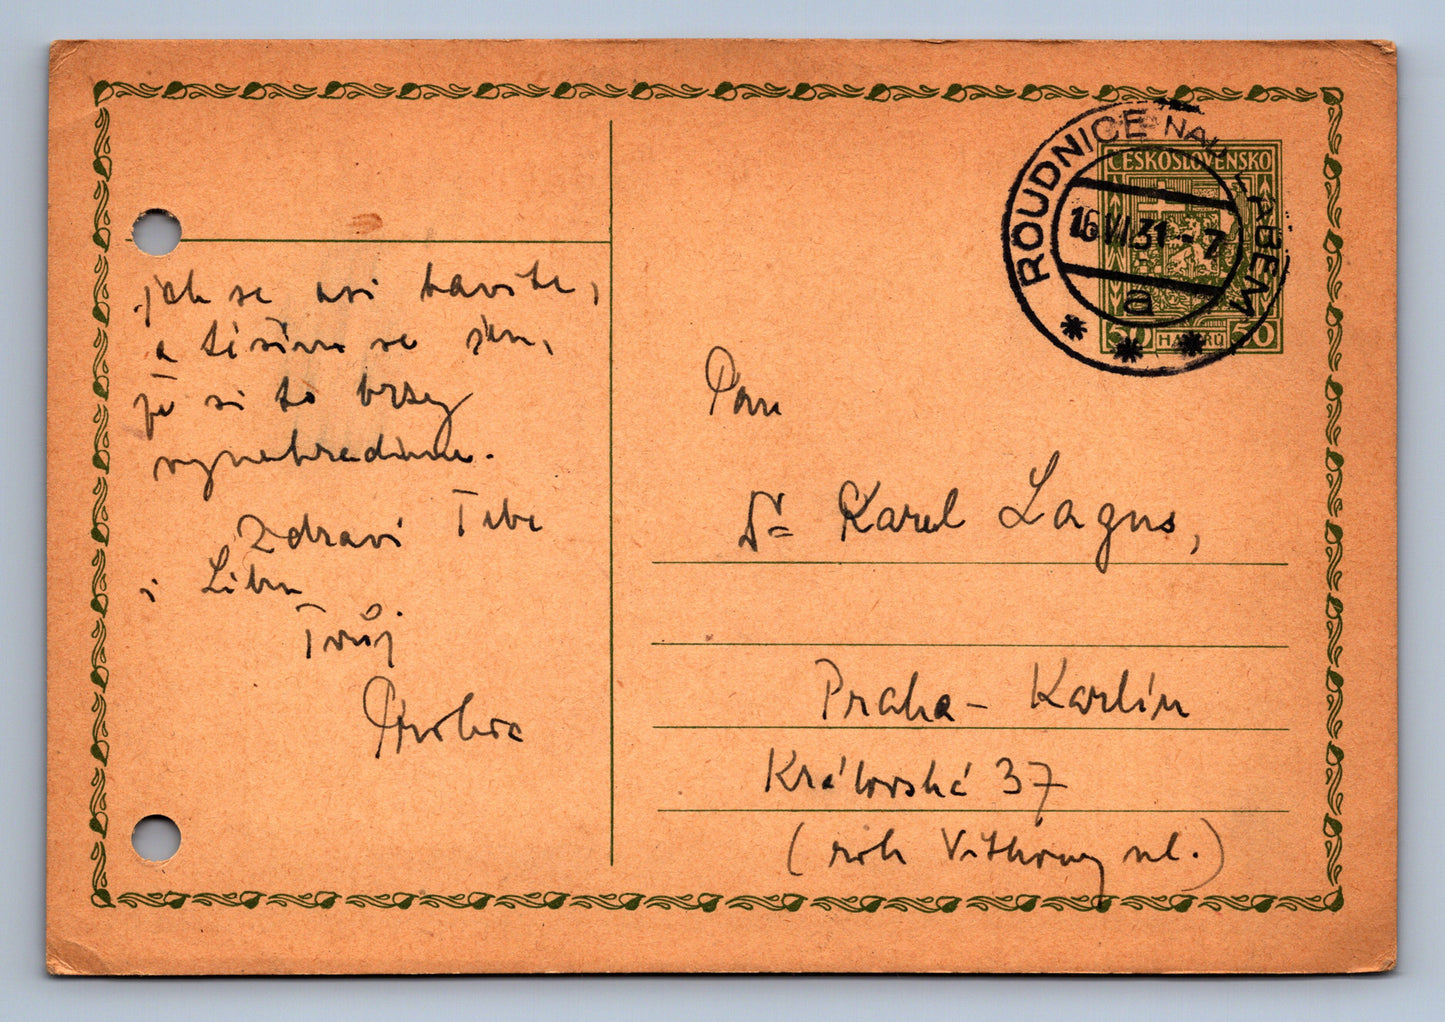 jak se asi bavíte,
a těším se jen,
že si to brzy
vynahradíme.
Zdraví Tebe
i Libu
Tvůj
ROUDNICE NAD LABEM
16.VI.31-7
a
ČESKOSLOVENSKO
50 HALÉŘŮ 50
Pan
Dr Karel Lagus,
Praha - Karlín
Královská 37
(roh Vítkovy ul.)